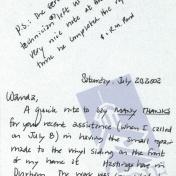 P.S.: The ser
technician left w
very nice note at the
time he completed the rep
Saturday, July 20, 2002
Wanda,
A quick note to say MANY THANKS
for your recent assistance (when I called
on July 8) in having the small repair
made to the vinyl siding on the front
of my home at Hastings here in
Durham. The work was